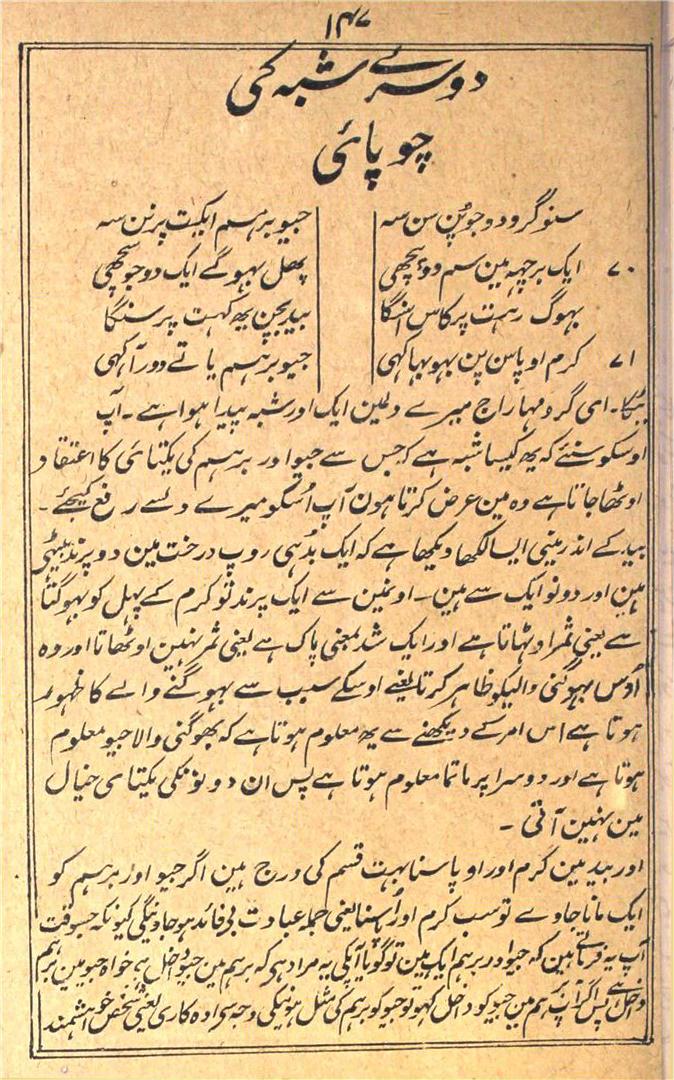 ۱۴۷
دوسرے شبہ کی
چوپائی
سنو گرو دوجو پن سن سہ جیو برہم ایکت پرنن سہ
۷۰ ایک برچہہ مین سم دوؤ پنچھی پھل بہوگے ایک دوجو سچھی
بہوگ رہت پرکاس اسنگا بید بچن یہ کہت پرسنگا
۷۱ کرم اوپاسن پن بہو بہاکہی جیو برہم یاتے دور آکہی
ٹیکا۔ ای گرو مہاراج میرے دلمین ایک اور شبہ پیدا ہوا ہے۔ آپ
اوسکو سنئے کہ یہ کیسا شبہ ہے کہ جس سے جیو اور برہم کی یکتائی کا اعتقاد
اوٹھا جاتا ہے وہ مین عرض کرتا ہون آپ اُسکو میرے دلسے رفع کیجئے۔
بید کے اندر یہی ایسا لکھا دیکھا ہے کہ ایک بدہی روپ درخت مین دو پرند بیٹھی
ہین اور دونو ایک سے ہین۔ اونمین سے ایک پرند تو کرم کے پہل کو بہوگتا
ہے یعنی ثمر اوٹہاتا ہے اور ایک شد بمعنی پاک ہے یعنی ثمر نہین اوٹھاتا اور وہ
اُوس بہوگنی والیکو ظاہر کرتا یعنے اوسکے سبب سے بہوگنے والے کا ظہور
ہوتا ہے اس امر کے دیکھنے سے یہ معلوم ہوتا ہے کہ بھوگنی والا جیو معلوم
ہوتا ہے اور دوسرا پرماتما معلوم ہوتا ہے پس ان دونونکی یکتای خیال
مین نہین آتی ۔
اور بید مین کرم اور اوپاسنا بہت قسم کی درج ہین اگر جیو اور برہم کو
ایک مانا جاوے تو سب کرم اور اُپاسنا یعنی جملہ عبادت بی فائدہ ہو جاوینگی کیونکہ جسوقت
آپ یہ فرماتے ہین کہ جیو اور برہم ایک ہین تو گویا آپکی یہ مراد ہی کہ برہم مین جیو داخل ہے خواہ جیو مین برہم
داخل ہے پس اگر آپ برہم مین جیو کو داخل کہو تو جیو کو برہم کی مثل ہونیکی وجہ سی ادہکاری یعنی شخص خواہشمند